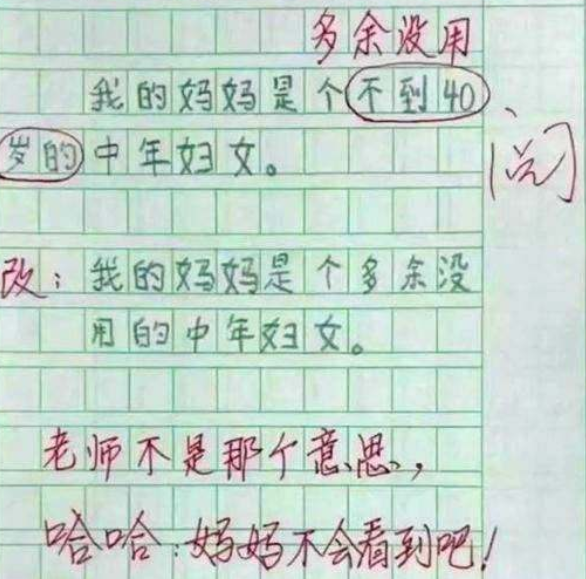 多余没用
我的妈妈是个不到40
岁的中年妇女。
阅
改：我的妈妈是个多余没
用的中年妇女。
老师不是那个意思，
哈哈：妈妈不会看到吧！